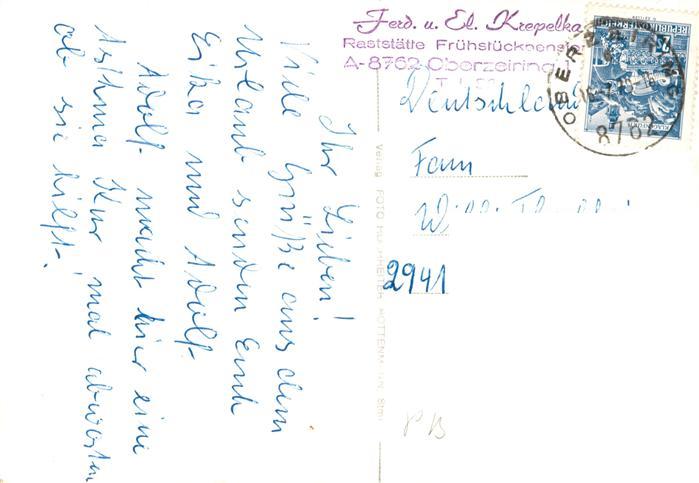 Ihr Lieben!
Viele Grüße aus dem
Urlaub senden Euch
Erika und Adolf.
Adolf macht hier eine
Asthma Kur mal abwarten
ob sie hilft.
Ferd. u. El. Krepelka
Raststätte Frühstückpension
A-8762 Oberzeiring
Deutschland
Fam
2941
Verlag FOTO
8762
REPUBLIK
PB